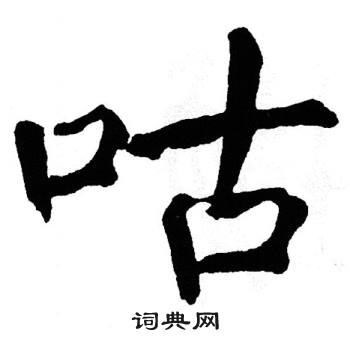 咕
词典网